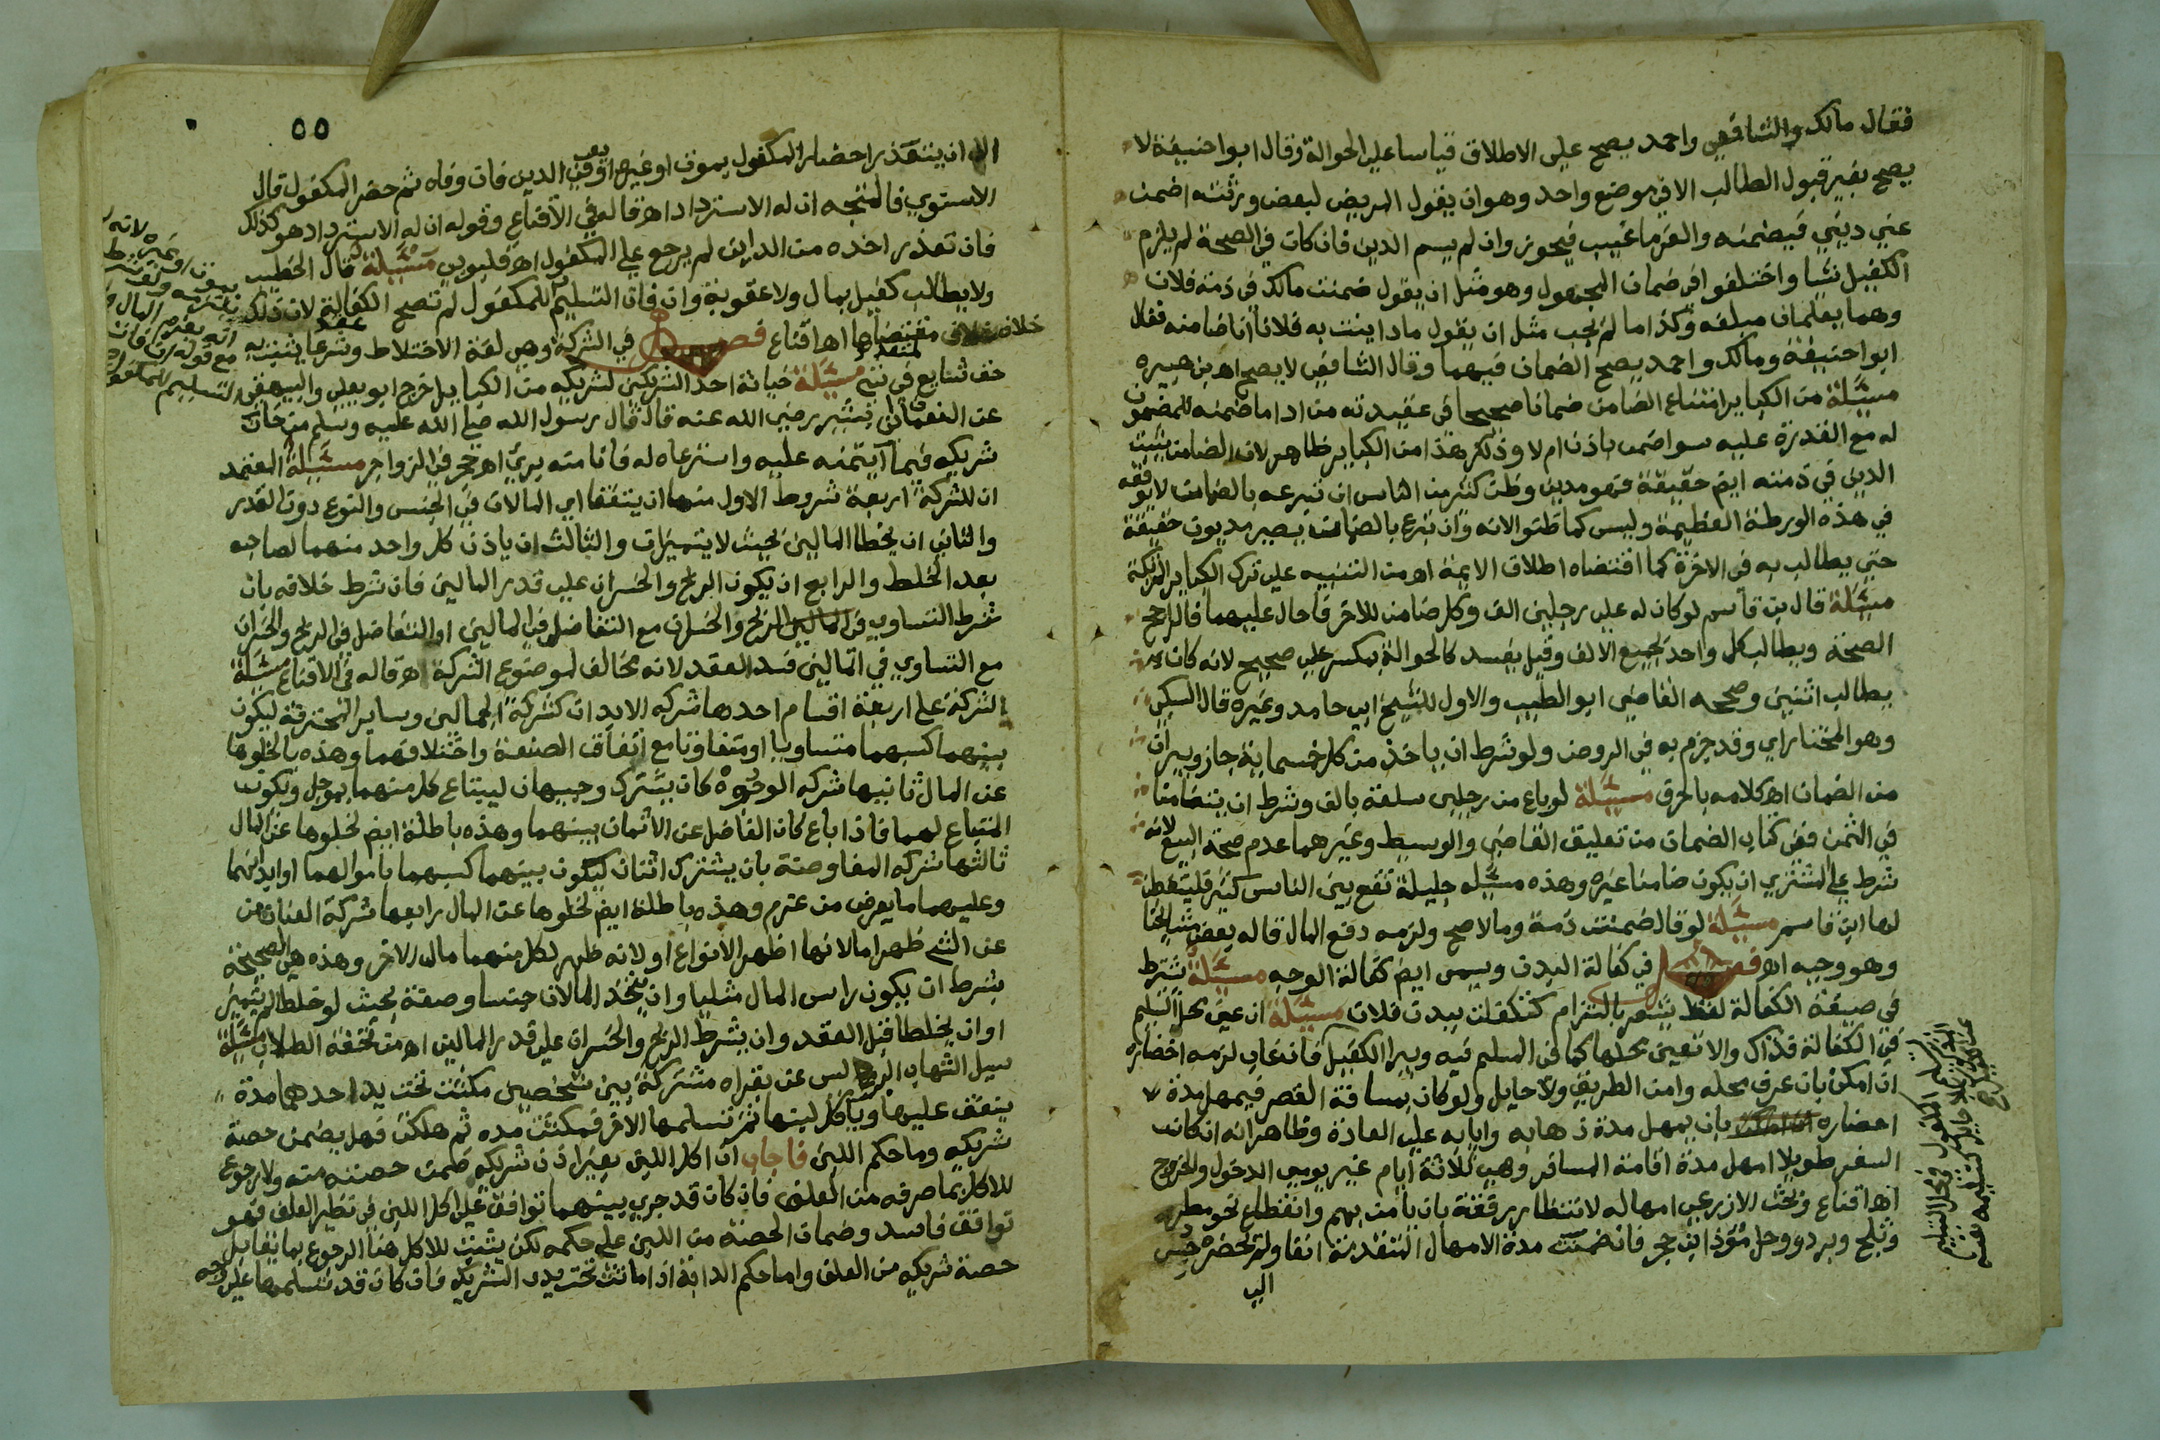 فقال مالك والشافعي واحمد يصح على الاطلاق قياسا على الحوالة وقال ابوا حنيفة لا
يصح بغير قبول الطالب الا في موضع واحد وهو ان يقول المريض لبعض ورثته اضمن
عني ديني فيضمنه والغرما غيب فيجوز وان لم يسم الدين فان كان في الصحة لم يلزم
الكفيل شيا واختلفوا في ضمان المجهول وهو مثل ان يقول ضمنت مالك في ذمة فلان
وهما يعلمان مبلغه وكذا ما لم يجب مثل ان يقول ما داينت به فلانا فانا ضامنه فقال
ابوا حنيفة ومالك واحمد يصح الضمان فيهما وقال الشافعي لا يصح اه بن هبيره
مسئلة من الكباير امتناع الضامن ضمانا صحيحا في عقيدته من ادا ما ضمنه للمضمون
له مع القدرة عليه سوا ضمن باذن ام لا وذكر هذا من الكباير ظاهر لان الضامن يثبت
الدين في ذمته ايضا حقيقة فهو مدين وظن كثير من الناس ان تبرعه بالضمان لا يوقعه
في هذه الورطة العظيمة وليس كما ظنوا لانه وان تبرع بالضمان يصير مديون حقيقة
حتى يطالب به في الاخرة كما اقتضاه اطلاق الايمة اه من التنبيه على ترك الكباير
مسئلة قال بن قاسم لو كان له على رجلين الف وكل ضامن للاخر فاحال عليهما فالراجح
الصحة ويطالب كل واحد بجميع الالف وقيل يفسد كالحوالة بمكسر على صحيح لانه كان لا
يطالب اثنين وصححه القاضي ابو الطيب والاول للشيخ ابي حامد وغيره قال السبكي
وهو المختار اي وقد جزم به في الروض ولو شرط ان ياخذ من كل خمسماية جاز ويبران
من الضمان اه كلامه بالحرق مسئلة لو باع من رجلين سلعة بالف وشرط ان يتضامنا
في الثمن ففي كتاب الضمان من تعليق القاضي والوسيط وغيرهما عدم صحة البيع لانه
شرط على المشتري ان يكون ضامنا غيره وهذه مسئله جليلة تقع بين الناس كثير فليتفطن
لها ابن قاسم مسئلة لو قال ضمنت ذمة ومالا صح ولزمه دفع المال قاله بعض مشايخنا
وهو وجيه اه فصل في كفالة البدن ويسمى ايضا كفالة الوجه مسئلة يشترط
في صيغة الكفالة لفظ يشعر بالتزام كتكفلت ببدن فلان مسئلة ان عين محل التسليم
في الكفالة فذاك والا تعين محلها كما في السلم فيه ويبرا الكفيل فان غاب لزمه احضاره
ان امكن بان عرف محله وامن الطريق ولا حايل ولو كان بمسافة القصر فيمهل مدة
احضاره بان يمهل مدة ذهابه وايابه على العادة وظاهر انه ان كان
السفر طويلا امهل مدة اقامة المسافر وهي ثلاثة ايام غير يومي الدخول والخروج
اه اقناع وبحث الاذرعي امهاله لانتظار رفقة بان يامن بهم وانقطاع نحو مطر
وثلج وبرد ووحل مؤذ ابن حجر فان ضمنت مدة الامهال المتقدمة انفا ولم يحضره حبس
الي
٥٥
الا ان يتعذر احضار المكفول بموت او غيره او وفي الدين فان وفاه ثم حضر المكفول قال
الاسنوي فالمتجه ان له الاسترداد اه قاله في الاقناع وقوله ان له الاسترداد هو كذلك
فان تعذر اخذه من الداين لم يرجع على المكفول اه قليوبي مسئلة قال الخطيب
ولا يطالب كفيل بمال ولا عقوبة وان فات التسليم للمكفول لم تصح الكفالة لان ذلك
خلاف مقتضاها اه اقناع فصل في الشركة وهي لغة الاختلاط وشرعا عقد يثبت به
حق شايع في شي لمتعدد مسئلة خيانة احد الشريكين لشريكه من الكباير اخرج ابو يعلى والبيهقي
عن النعمان بن بشير رضي الله عنه قال قال رسول الله صلى الله عليه وسلم من خان
شريكه فيما ائتمنه عليه واسترعاه له فانا منه بريئ اه حجر في الزواجر مسئلة المعتمد
ان للشركة اربعة شروط الاول منها ان يتفقا اي المالان في الجنس والنوع دون القدر
والثاني ان يخلطا المالين بحيث لا يتميزان والثالث ان ياذن كل واحد منهما لصاحبه
بعد الخلط والرابع ان يكون الربح والخسران على قدر المالين فان شرط خلافه بان
شرط التساوي في الربح والخسران مع التفاضل في المالين او التفاضل في الربح والخسران
مع التساوي في المالين فسد العقد لانه مخالف لموضوع الشركة اه قاله في الاقناع مسئلة
الشركة على اربعة اقسام احدها شركه الابدان كشركة الحمالين وساير المحترفة ليكون
بينهما كسبهما متساويا او متفاوتا مع اتفاق الصنعة واختلافهما وهذه بالخلوها
عن المال ثانيها شركه الوجوه كان يشترك وجيهان ليبتاع كل منهما بموجل ويكون
المبتاع لهما فاذا باع كان الفاضل عن الاثمان بينهما وهذه باطلة ايضا لخلوها عن المال
ثالثها شركه المفاوضة بان يشترك اثنان ليكون بينهما كسبهما باموالهما او ابدانهما
وعليهما ما يعرض من غرم وهذه باطلة ايضا لخلوها عن المال رابعها شركة العنان من
عن الشي ظهر اما لانها اظهر الانواع او لانه ظهر لكل منهما مال الاخر وهذه هي الصحيحة
بشرط ان يكون راس المال مثليا وان يتحد المالان جنسا وصفة بحيث لو خلطا لم يتميز
او ان يخلطا قبل العقد وان يشرط الربح والخسران على قدر المالين اه من تحفة الطلاب مسئلة
سيل الشهاب الرملي عن بقراه مشتركة بين شخصين مكثت تحت يد احدهما مدة
ينفق عليها وياكل لبنها ثم تسلمها الاخر فمكثت مده ثم هلكت فهل يضمن حصة
شريكه وما حكم اللبن فاجاب ان اكل اللبن بغير اذن شريكه ضمن حصته منه ولا رجوع
للاكل بما صرفه من العلف فان كان قد جرى بينهما توافق على اكل اللبن في نظير العلف فهو
توافق فاسد وضمان الحصة من اللبن على حكمه لكن يثبت للاكل هنا الرجوع بما يقابل
حصة شريكه من العلف واما حكم الدابة اذا ماتت تحت يد الشريك فان كان قد تسلمها على وجه